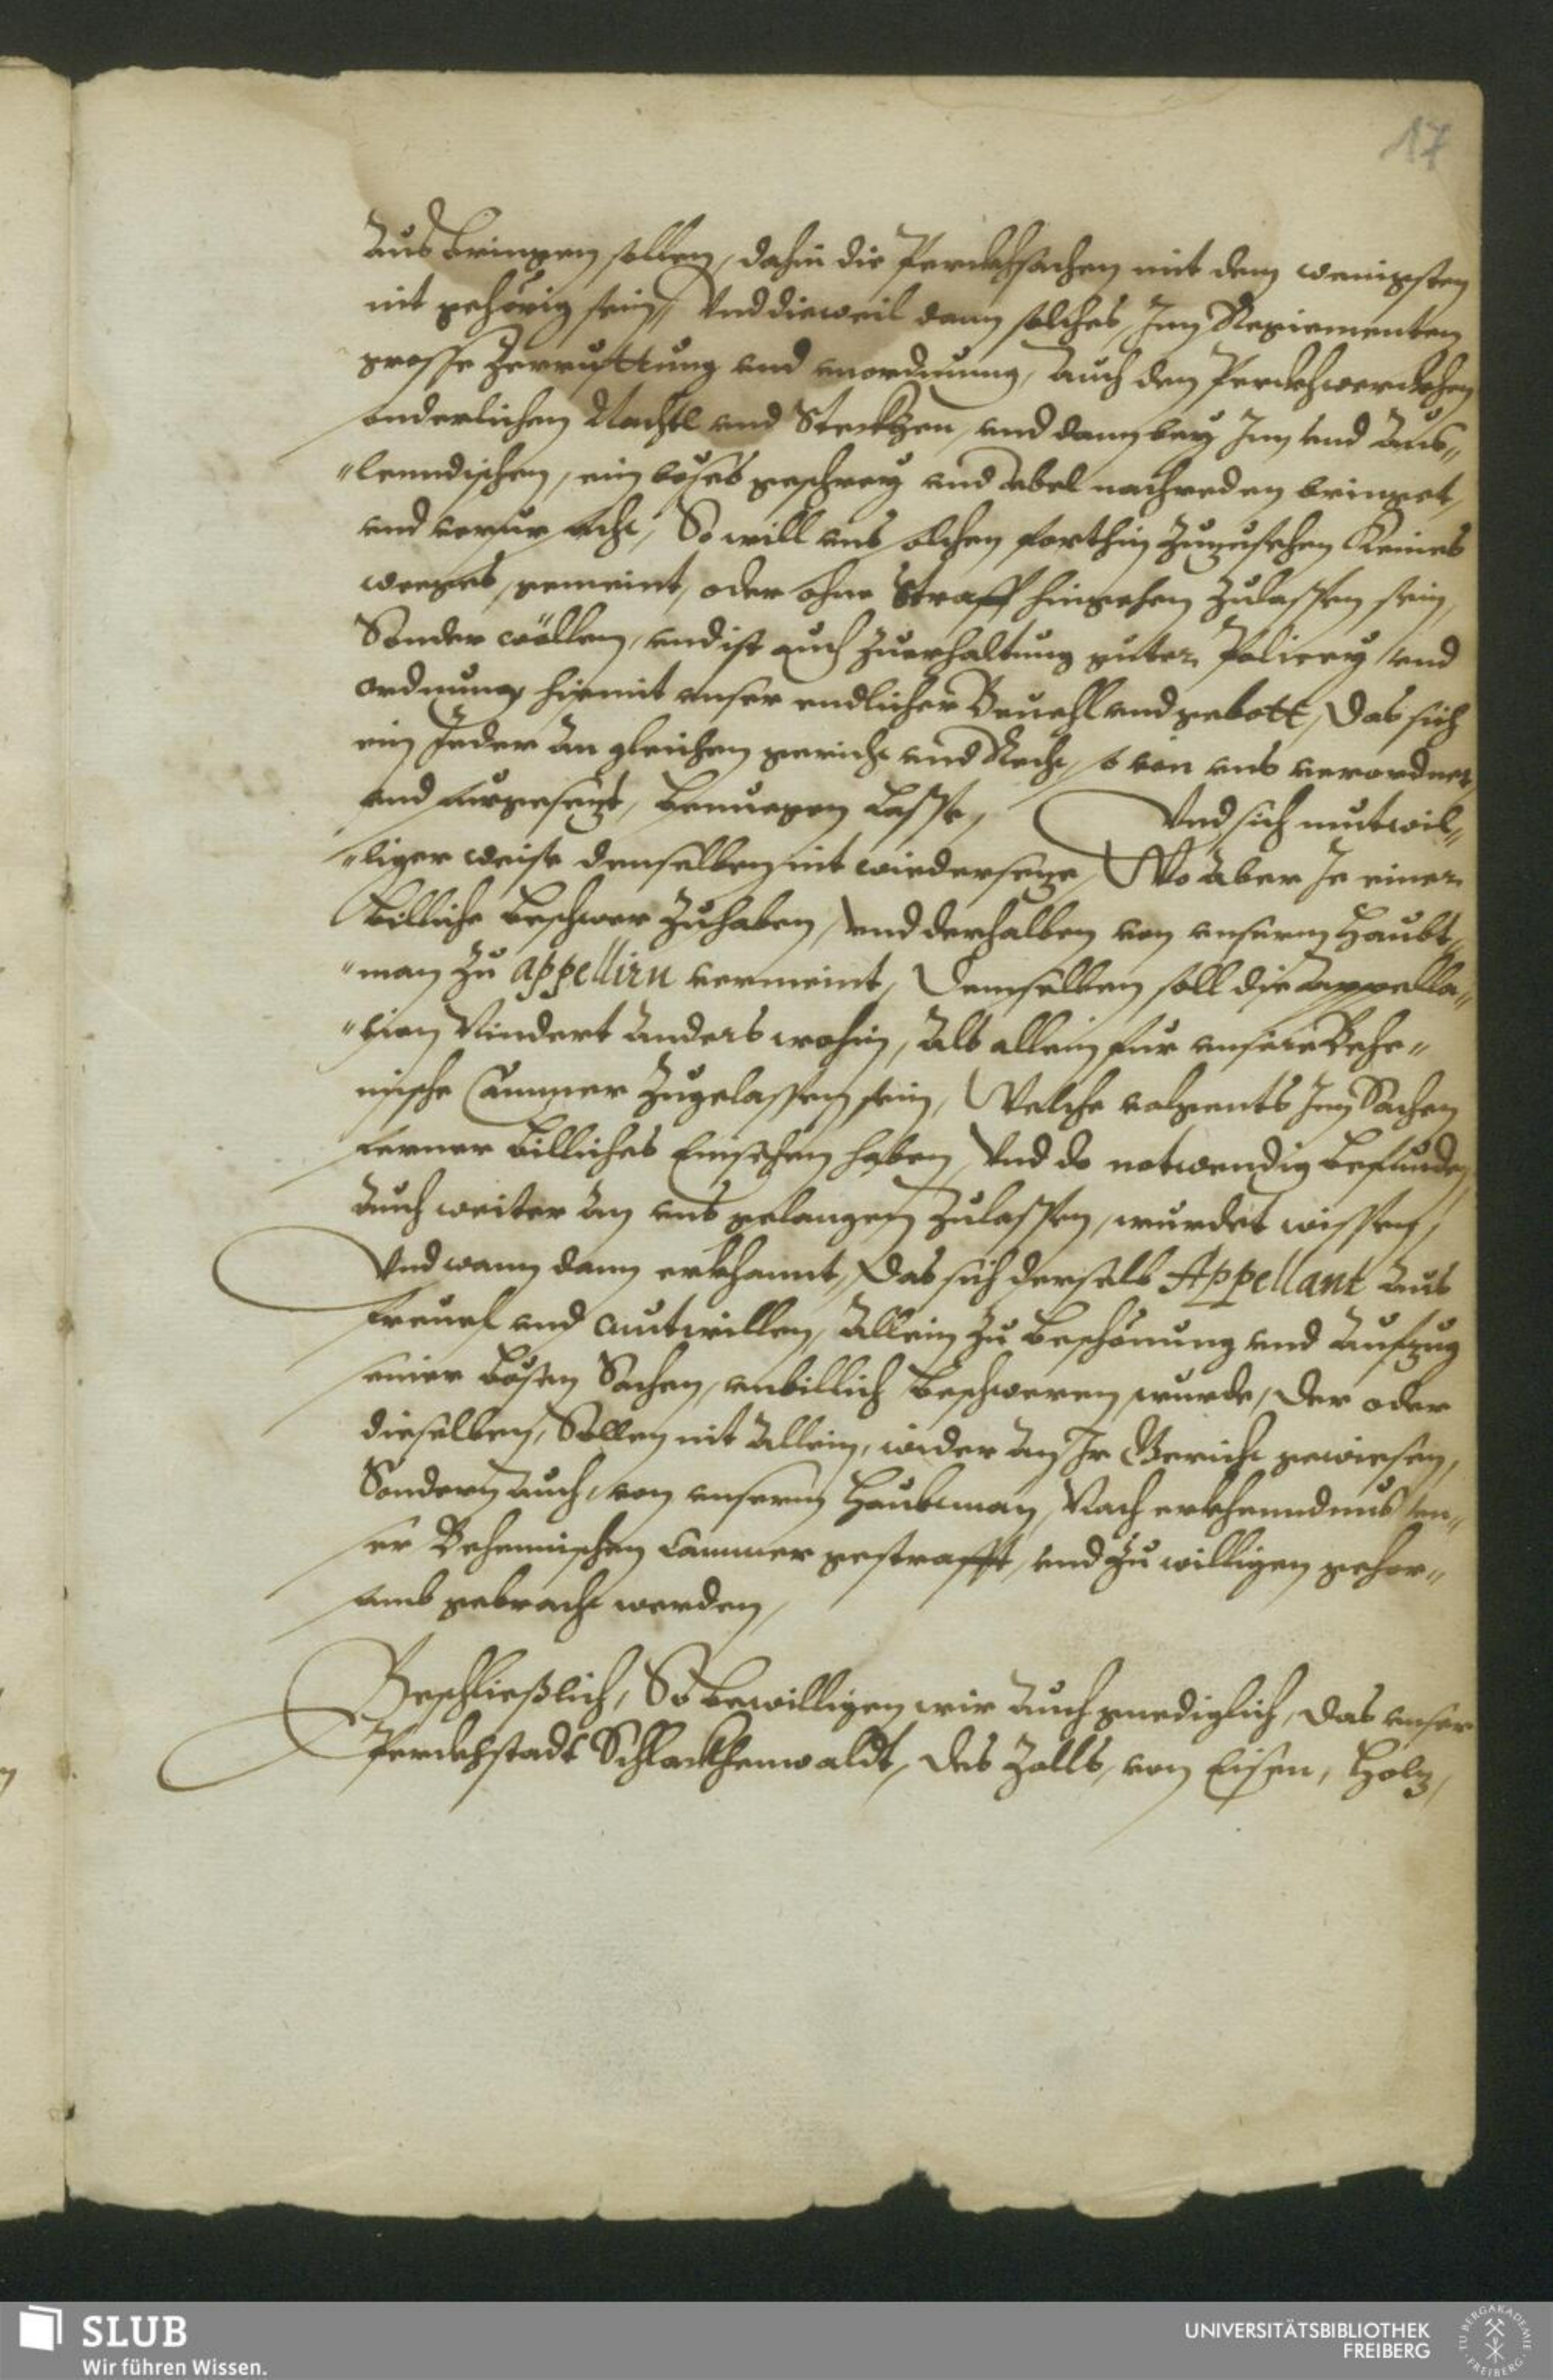 17
Aus bringen sollen, dahin die Perckhsachen mit dem wenigsten
nit gehörig sein, Und dieweil dann solches, Inn Regiementen
grosse Zerruttung und unordnung, Auch den Perckhwerckhen
sonderlichen Nachtl und Steckhen, und dann bey Inn und Aus„
„lenndischen, ein böses geschrey und vbel nachreden bringet,
und verursacht, So will uns solchem forthin Zuzusehen Keines
weeges, gemeint, oder ohne Straff hingehen Zulassen sein,
Sonder wöllen, und ist auch Zuerhaltung guter Policey und
ordnung hiemit unser endlicher Beuehl und gebott, Das sich
ein Jeder An gleichem gericht und Recht, so von uns verordnet,
und furgesezt, benuegen Lasse, Und sich mutwil„
„liger weise denselben nit wiedersetze, Wo Aber Je einer
billiche beschwer Zuhaben, und derhalben von unserm Haubt„
„man Zu appellirn vermeint, Demselben soll die Appella„
„tion Nindert Anders wohin, Als allein fur unsere Behe„
mische Cammer Zugelassen sein, Welche volgents Inn Sachen
ferner billiches Einsehen haben, Und do notwendig befunden
Auch weiter An uns gelangen Zulassen, wurdet wissen,
Und wann dann erkhannt, Das sich derselb Appellant Aus
freuel und mutwillen, Allein Zu beschönung und Aufzug
seiner bösen Sachen, unbillich beschweren wurde, Der oder
dieselben, Sollen nit Allein, wider An Ir Gericht gewiesen,
Sondern Auch, von unserm Haubtman, Nach erkhenndnus un„
ser Behemischen Cammer gestrafft, und Zu willigen gehor„
samb gebracht werden,
Beschließlich, So bewilligen wir Auch gnediglich, Das unser
Perckhstadt Schlackhenwaldt, Des Zolls, von Eisen, Holz,
SLUB
Wir führen Wissen.
UNIVERSITÄTSBIBLIOTHEK
FREIBERG
TU BERGAKADEMIE
FREIBERG